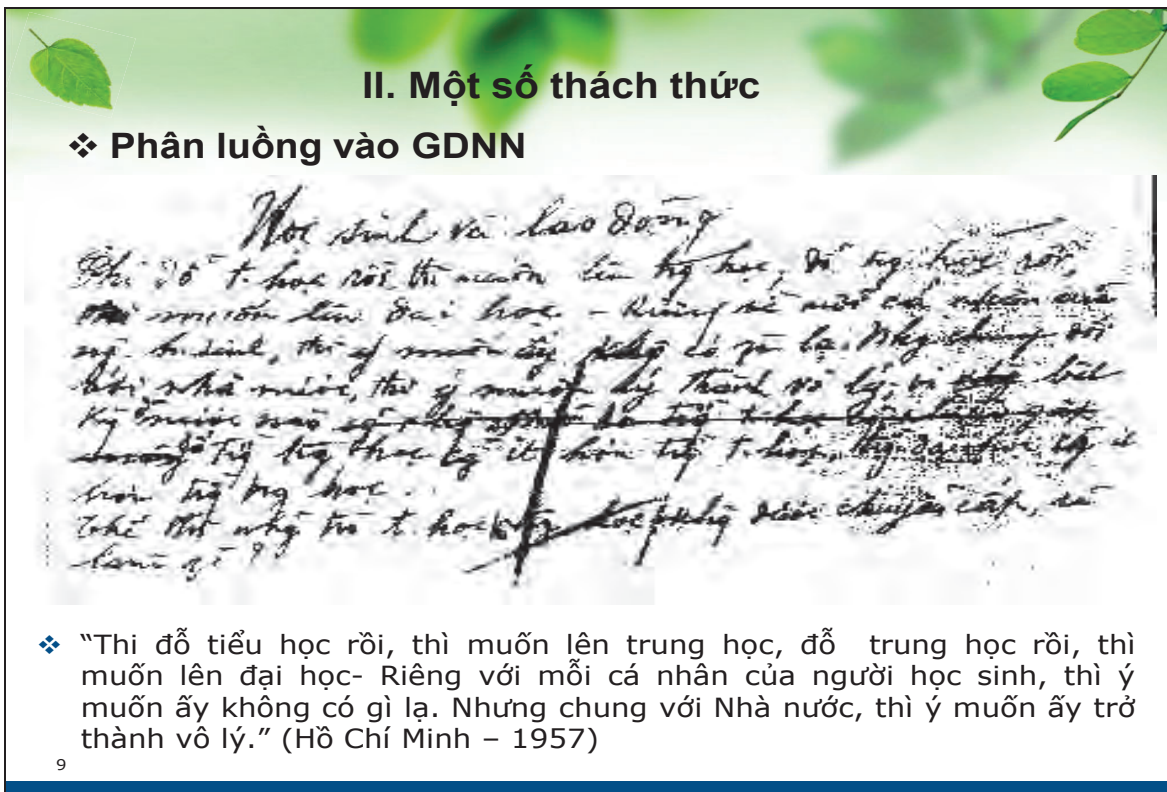 II. Một số thách thức
❖ Phân luồng vào GDNN
Học sinh và lao động
Thi đỗ t. học rồi thì muốn lên trg học, đỗ trg học rồi,
thì muốn lên đại học - Riêng về mỗi cá nhân của
ng. h. sinh, thì ý muốn ấy khg có gì lạ. Nhg chung với
nhà nước, thì ý muốn ấy thành vô lý, vì bất
kỳ nước nào
trg học cũng ít hơn trg t. học,
hơn trg trg học.
Thế thì nhg trò t. học khg được chuyển cấp, sẽ
làm gì?
❖ “Thi đỗ tiểu học rồi, thì muốn lên trung học, đỗ trung học rồi, thì
muốn lên đại học- Riêng với mỗi cá nhân của người học sinh, thì ý
muốn ấy không có gì lạ. Nhưng chung với Nhà nước, thì ý muốn ấy trở
thành vô lý.” (Hồ Chí Minh – 1957)
9